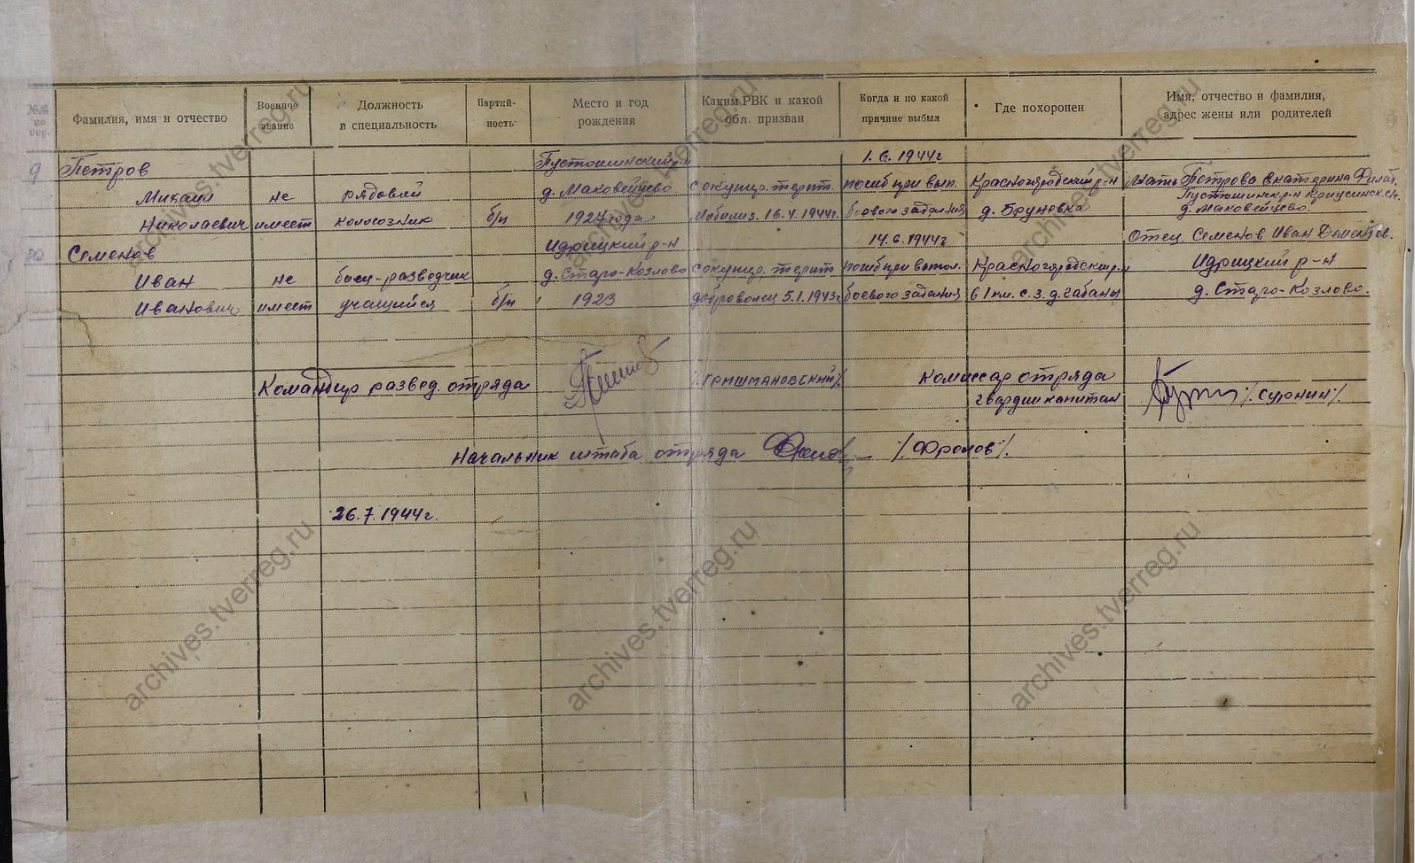 №№ по пор.
Фамилия, имя и отчество
Военное звание
Должность в специальность
Партий-ность
Место и год рождения
Каким РВК и какой обл. призван
Когда и по какой причине выбыл
Где похоронен
Имя, отчество и фамилия, адрес жены или родителей
9 Петров Пустошинский р-н 1.6.1944г
Михаил не рядовой д. Маковейцево с окупир. террит. погиб при вып. Красногородский р-н Мать Петрова Екатерина
Пустошинск р-н
Николаевич имеет колхозник б/п 1927 года Мобилиз. 16.4.1944г. боевого задания д. Бруневка д. Маковейцево.
10 Семенов Идрицкий р-н 14.6.1944г Отец Семенов Иван
Иван не боец-разведчик д. Старо-Козлово с окупир. террит погиб при выпол. Красногородский р-н Идрицкий р-н
Иванович имеет учащийся б/п 1923 доброволец 5.1.1943г боевого задания в 1 км. с. з. д. Габаны д. Старо-Козлово.
Командир развед. отряда /. Гришмановский/. Комиссар отряда
гвардии капитан /. Сулонин/.
Начальник штаба отряда /. Фролов/.
26.7.1944г.
archives.tverreg.ru
archives.tverreg.ru
archives.tverreg.ru
archives.tverreg.ru
archives.tverreg.ru
archives.tverreg.ru